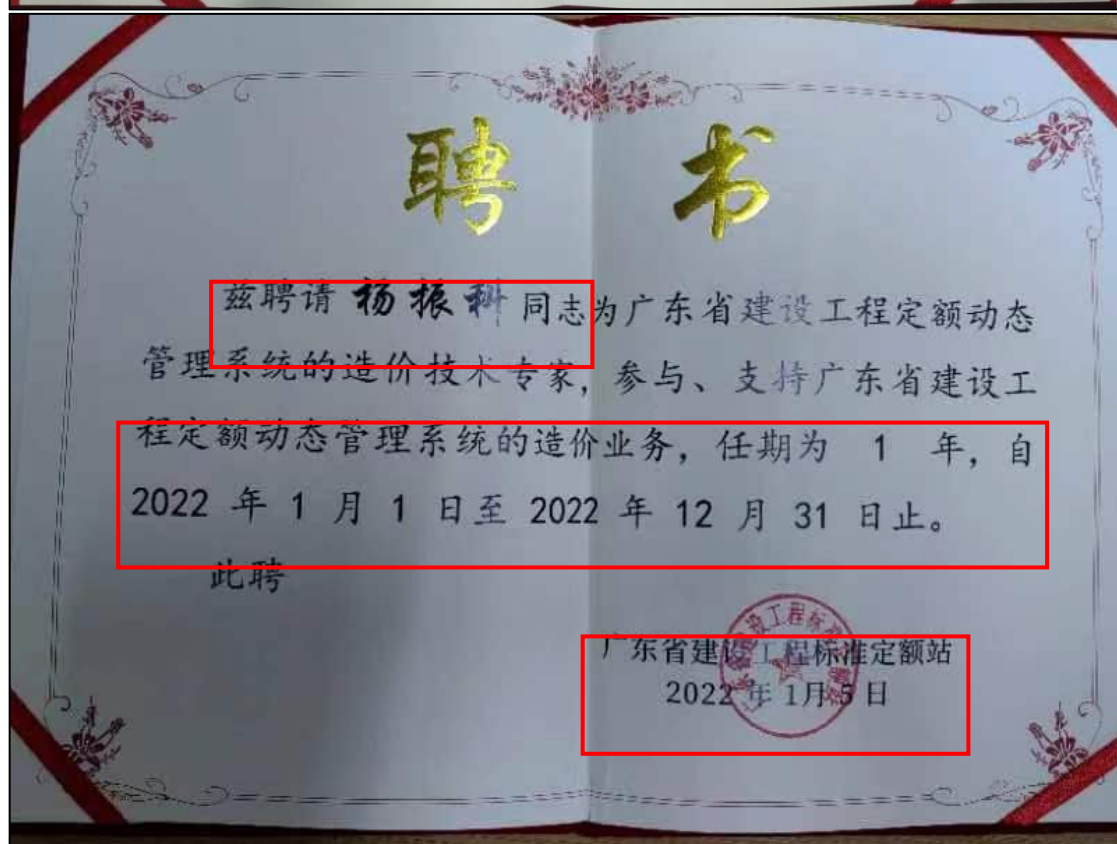 聘 书
兹聘请 杨振科 同志为广东省建设工程定额动态
管理系统的造价技术专家，参与、支持广东省建设工
程定额动态管理系统的造价业务，任期为 1 年，自
2022 年 1 月 1 日至 2022 年 12 月 31 日止。
此聘
广东省建设工程标准定额站
2022 年 1月 5 日